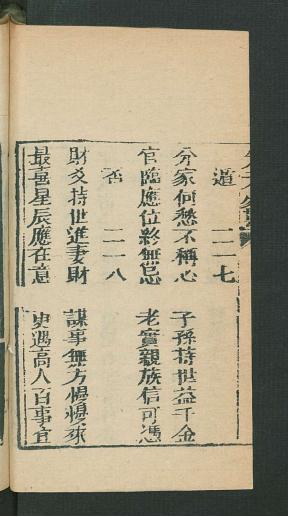 遁　二一一七
分家何愁不稱心　子孫持世益千金
官臨應位終無忌　老實親族信可憑
否　二一一八
財爻持世進妻財　謀事無方慢慢來
最喜星辰應在意　史遇高人百事宜